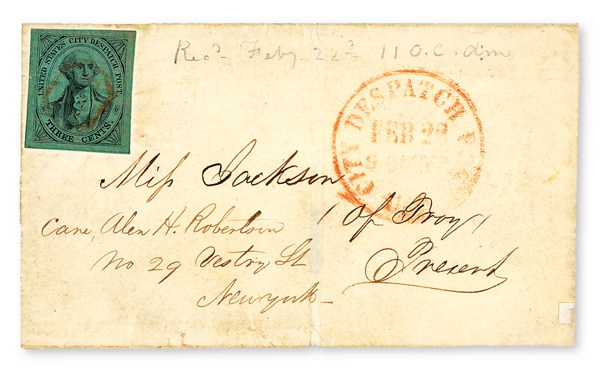 UNITED STATES CITY DESPATCH POST.
THREE CENTS.
Recd. Feby. 22d 11 O.C.
CITY DESPATCH P
FEB 22
Miss Jackson
(of Troy)
Care, Alex H. Robertson
No 29 Vestry St
Present
Newyork